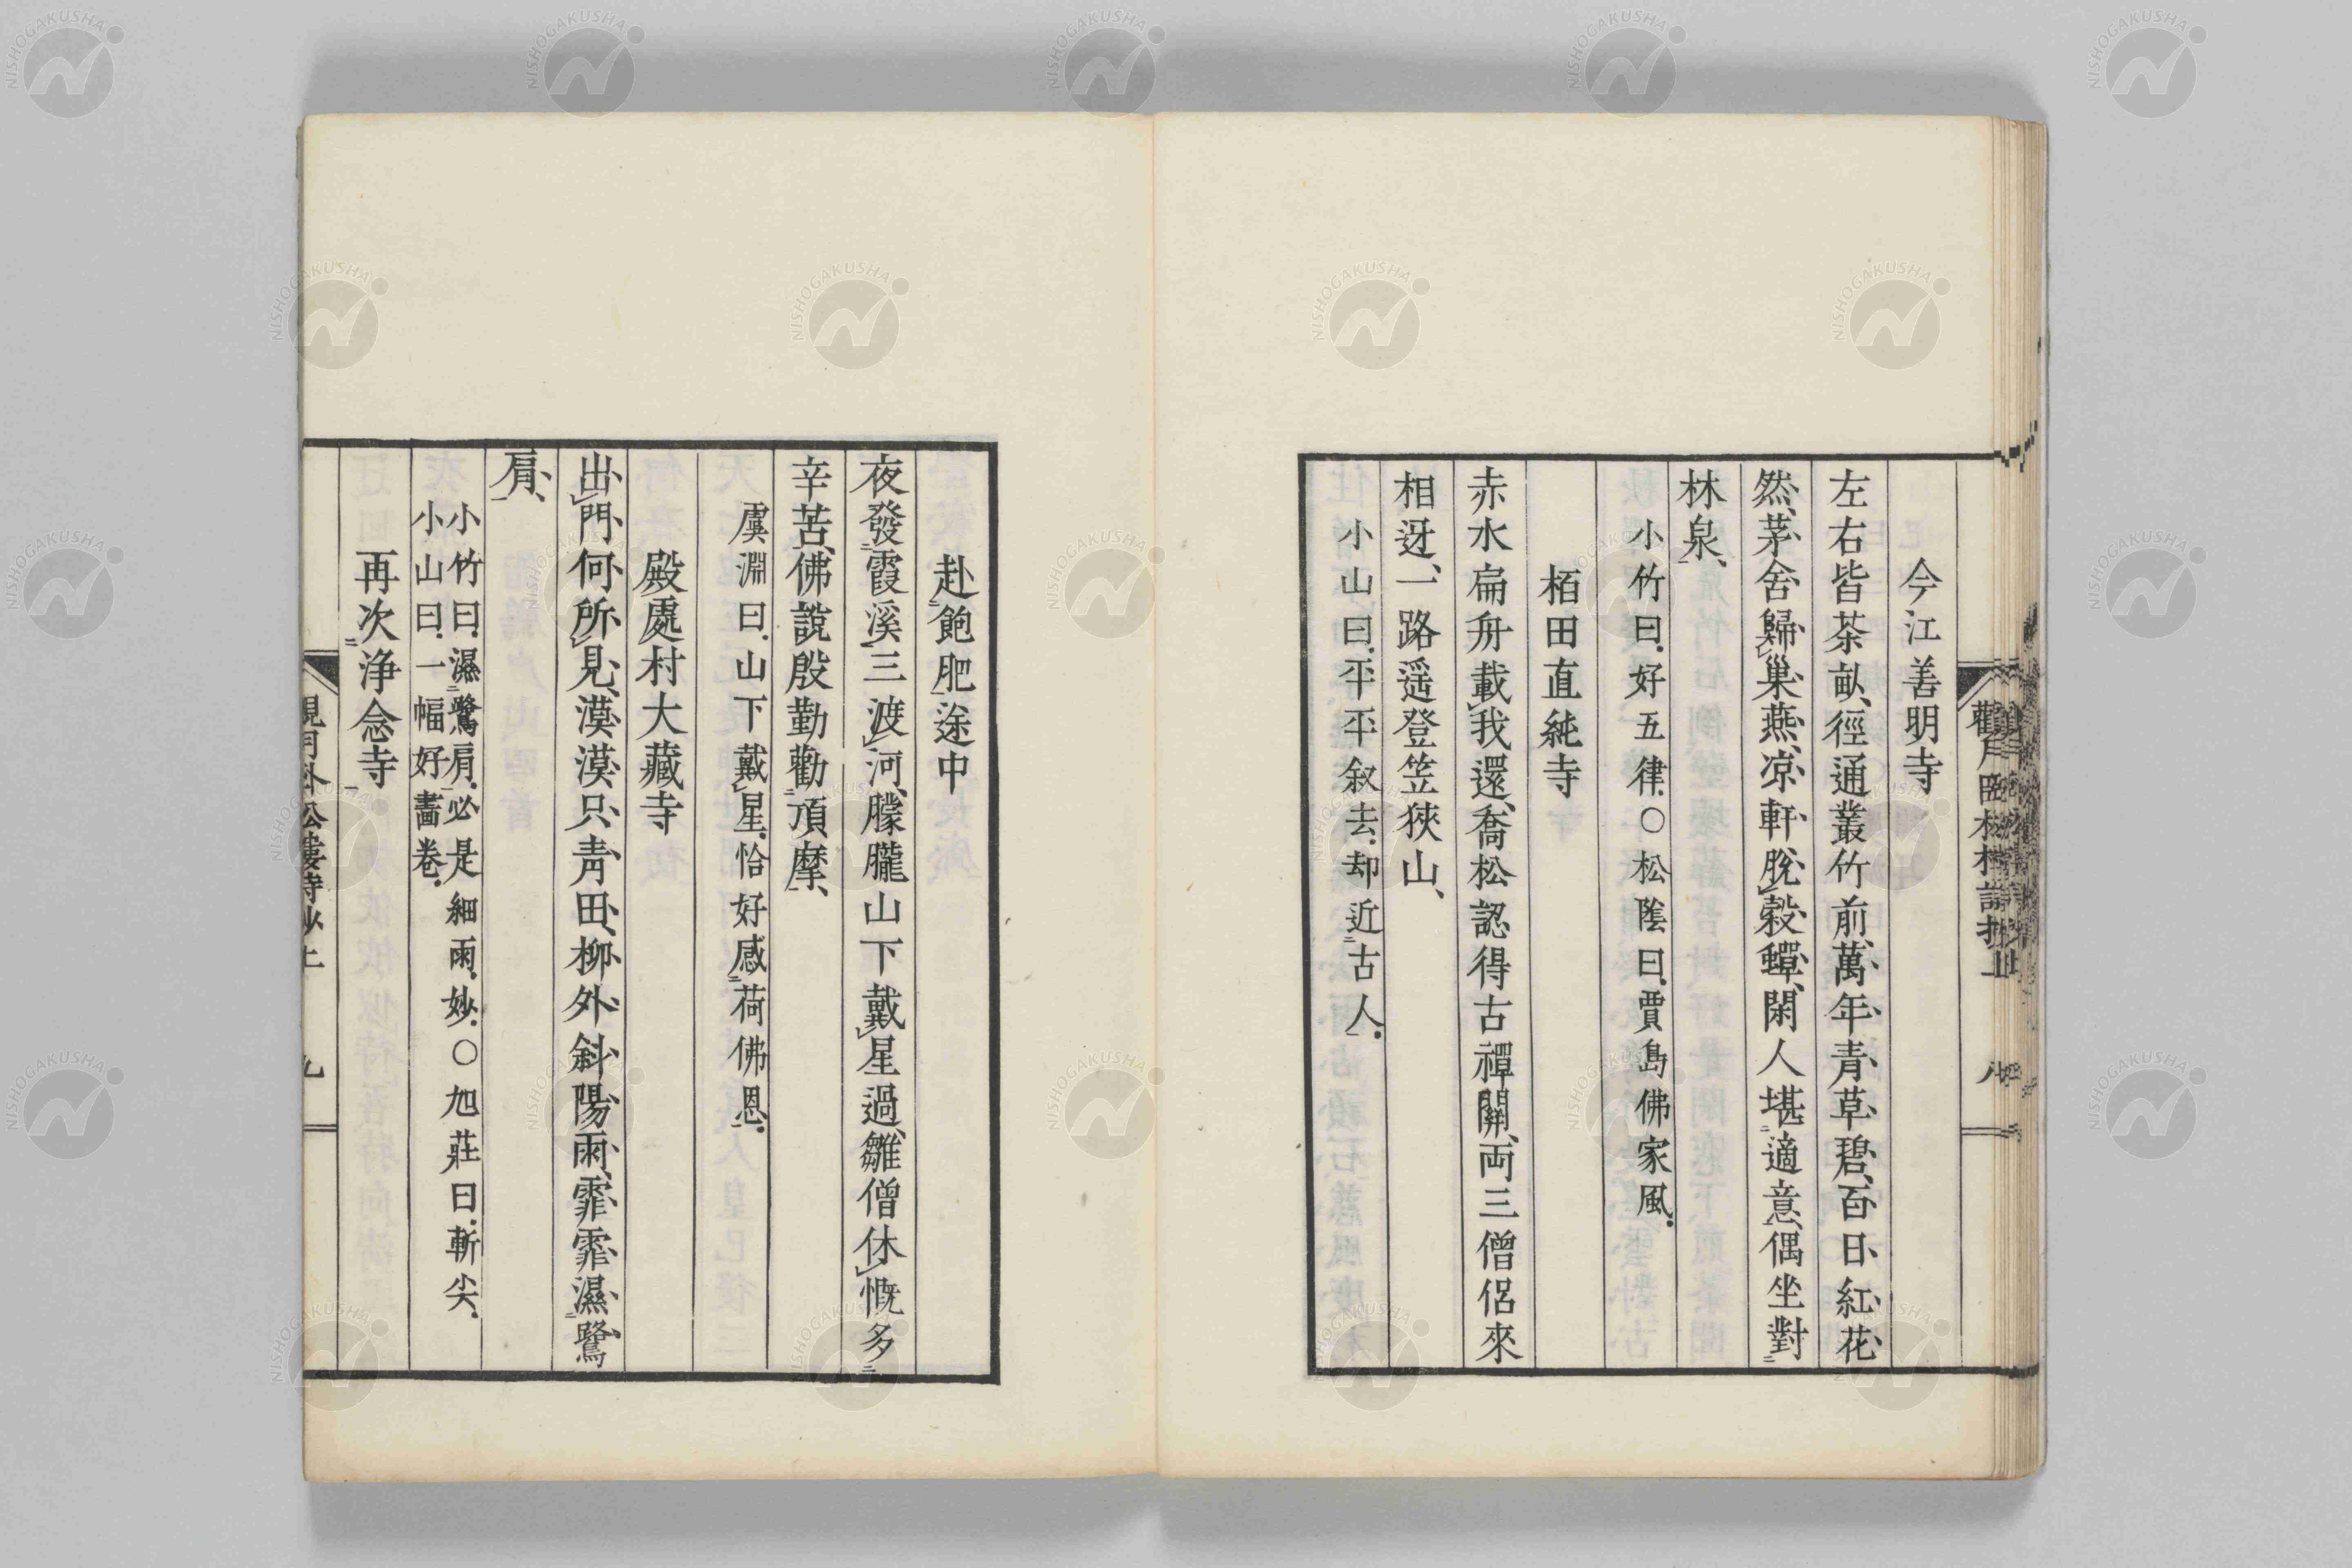 今江善明寺
左右皆茶畝、徑通叢竹前、萬年青草碧、百日紅花
然、茅舍歸巢燕、凉軒脫殼蟬、閑人堪適意、偶坐對
林泉、
小竹曰.好五律.○松陰曰.賈島佛家風.
栢田直純寺
赤水扁舟載我還、喬松認得古禪關、両三僧侶來
相迓、一路遥登笠狹山、
小山曰.平平叙去.却近古人.
赴飽肥途中
夜發霞溪三渡河、朦朧山下戴星過、雛僧休慨多
辛苦、佛說殷勤勸頂摩、
虞淵曰.山下戴星.恰好感荷佛恩.
殿處村大藏寺
出門何所見、漠漠只青田、柳外斜陽雨、霏霏濕鷺
肩、
小竹曰.濕鷺肩.必是細雨.妙.○旭莊曰.斬尖.
小山曰.一幅好畵卷.
再次浄念寺
九
NISHOGAKUSHA